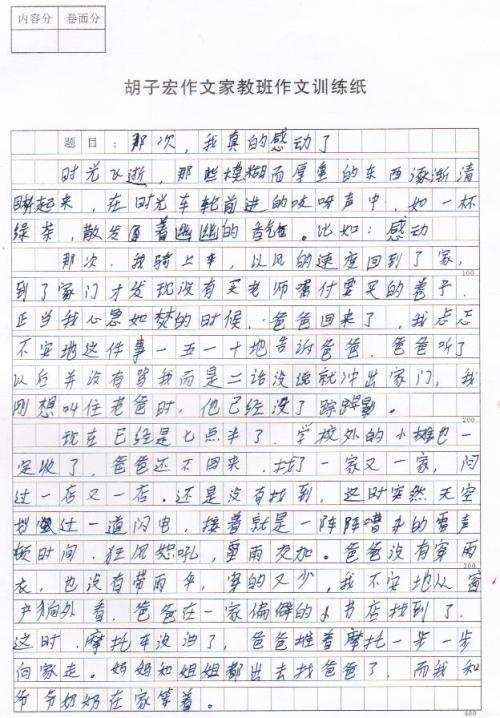 内容分 卷面分
胡子宏作文家教班作文训练纸
题目：那次，我真的感动了
时光飞逝，那些模糊而厚重的东西逐渐清
晰起来，在时光车轮前进的吱呀声中，如一杯
绿茶，散发着幽幽的香气。比如：感动
那次，我骑上车，以风的速度回到了家，
100
到了家门才发现没有买老师嘱付要买的善子．
正当我心急如焚的时候，爸爸回来了，我忐忑
不安地这件事一五一十地告诉爸爸．爸爸听了
以后并没有骂我而是二话没说就冲出家门，我
刚想叫住老爸时，他已经没了踪影。
200
现在已经是七点半了．学校外的小摊也一
定收了，爸爸还不回来．找了一家又一家，问
过一店又一店．还是没有找到，这时突然天空
划过一道闪电，接着就是一阵阵嘈杂的雷声
顿时间．狂风怒吼，雷雨交加。爸爸没有穿雨
300
衣，也没有带雨伞，穿的又少，我不安地从窗
户向外看．爸爸在一家偏僻的小书店找到了．
这时．摩托车没油了，爸爸推着摩托一步一步
向家走。妈妈和姐姐都出去找爸爸了，而我和
爷爷奶奶在家等着。
400